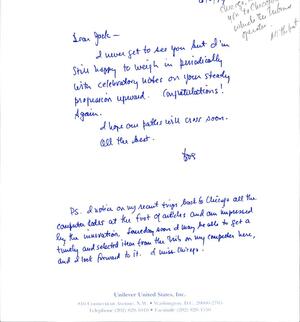 Dear Jack —
I never get to see you but I'm
still happy to weigh in periodically
with celebratory notes on your steady
progression upward. Congratulations!
Again.
I hope our paths will cross soon.
All the best.
P.S. I notice on my recent trips back to Chicago all the
computer codes at the foot of articles and am impressed
by the innovation. Someday soon I may be able to get a
timely and selected item from the Trib on my computer here,
and I look forward to it. I miss Chicago.
Unilever United States, Inc.
Washington, D.C.
Telephone (202) Facsimile (202)